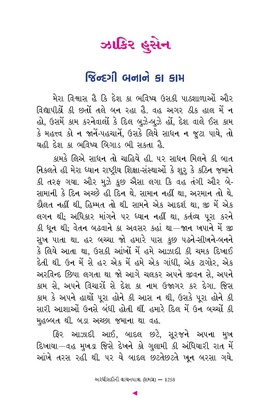 ઝાકિર હુસેન
જિન્દગી બનાને કા કામ
મેરા વિશ્વાસ હૈ કિ દેશ કા ભવિષ્ય ઉસકી પાઠશાળાઓં ઔર
વિદ્યાપીઠોં કી છતોં તલે બન રહા હૈ. વહ અગર ઠીક હાલ મેં ન
હો, ઉસમેં કામ કરનેવાલોં કે દિલ બુઝે-બુઝે હોં, દેશ વાલે ઈસ કામ
કે મહત્ત્વ કો ન જાનેં-પહચાનેં, ઉસકે લિયે સાધન ન જુટા પાયે, તો
યહી દેશ કા ભવિષ્ય બિગાડ ભી સકતા હૈ.
કામકે લિએ સાધન તો ચાહિયે હી. પર સાધન મિલને કી બાત
નિકલતે હી મેરા ધ્યાન રાષ્ટ્રીય શિક્ષા-સંસ્થાઓં કે શુરૂ કે કઠિન જમાને
કી તરફ ગયા. ઔર મુઝે કુછ ઐસા લગા કિ વહ તંગી ઔર બે-
સામાની કે દિન અચ્છે હી દિન થે. સામાન નહીં થા, અરમાન તો થે.
દૌલત નહીં થી, હિમ્મત તો થી. સામને એક આદર્શ થા, જી મેં એક
લગન થી; અધિકાર માંગને પર ધ્યાન નહીં થા, કર્તવ્ય પૂરા કરને
કી ધૂન થી; વેતન બઢવાને કા અવસર કહાં થા—જાન ખપાને મેં જી
સુખ પાતા થા. હર બચ્ચા જો હમારે પાસ કુછ પઢને-સીખને-બનને
કે લિયે આતા થા, ઉસકી આંખોં મેં હમે આઝાદી કી ચમક દિખાઈ
દેતી થી. ઉન મેં સે હર એક મેં હમે એક ગાંધી, એક ટગોર, એક
અરવિન્દ છિપા લગતા થા જો આગે ચલકર અપને જીવન સે, અપને
કામ સે, અપને વિચારોં સે દેશ કા નામ ઉજાગર કર દેગા. જિસ
કામ કે અપને હાથોં પૂરા હોને કી આસ ન થી, ઉસકે પૂરા હોને કી
સારી આશાઓં ઉનસે બંધી હોતી થીં. હમારે દિલ મેં ઉન બચ્ચોં કી
મુહબ્બત થી. બડા અચ્છા જમાના થા વહ.
ફિર આઝાદી આઈ, બાદલ છટે, સૂરજને અપના મુખ
દિખાયા—વહ મુખડા જિસે દેખને કો ગુલામી કી અંધિયારી રાત મેં
આંખે તરસ રહી થીં. પર યે બાદલ છટતેછટતે ખૂન બરસા ગયે.